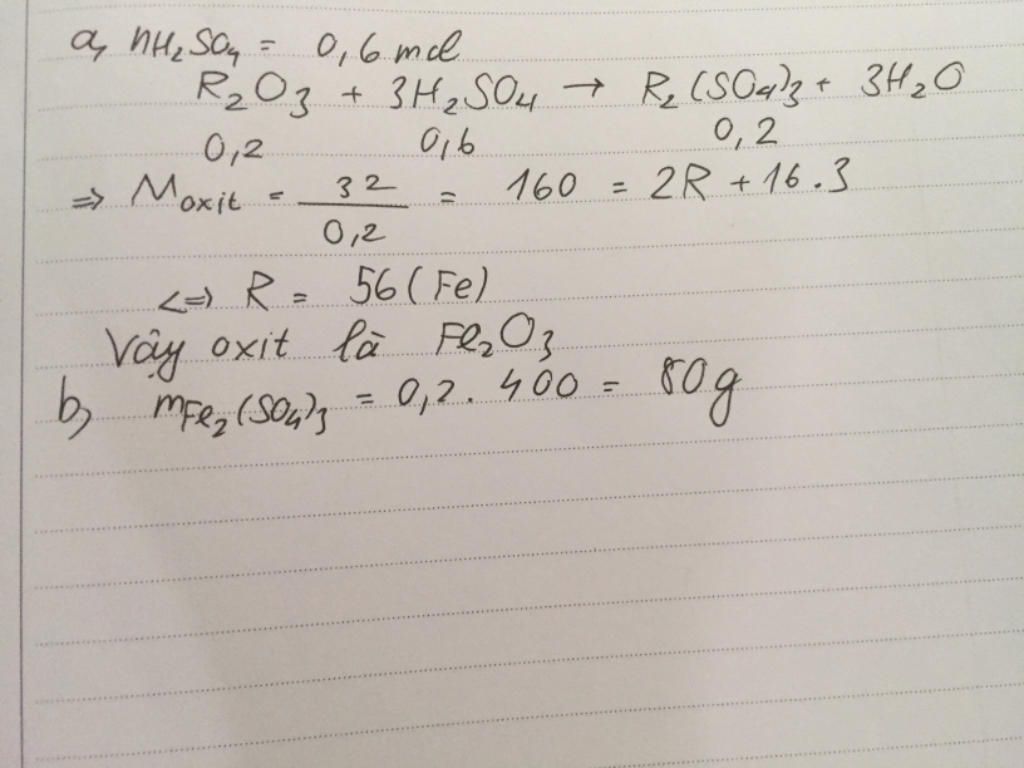 a, nH₂SO₄ = 0,6 mol
R₂O₃ + 3H₂SO₄ → R₂(SO₄)₃ + 3H₂O
0,2 0,6 0,2
=> M oxit = 32/0,2 = 160 = 2R + 16.3
<=> R = 56 (Fe)
Vậy oxit là Fe₂O₃
b, mFe₂(SO₄)₃ = 0,2. 400 = 80g